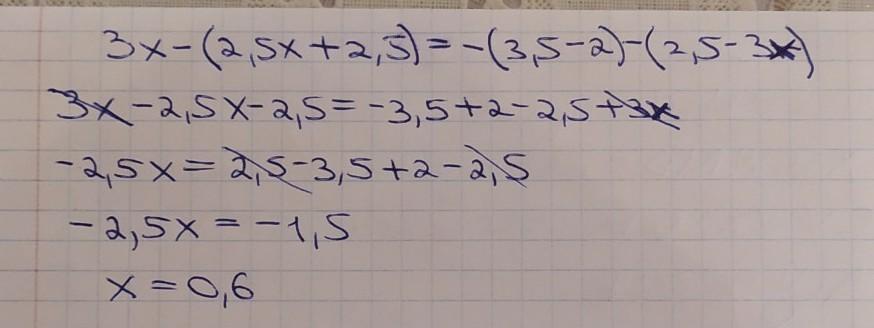 3x-(2,5x+2,5)=-(3,5-2)-(2,5-3x)
3x-2,5x-2,5=-3,5+2-2,5+3x
-2,5x=2,5-3,5+2-2,5
-2,5x=-1,5
x=0,6